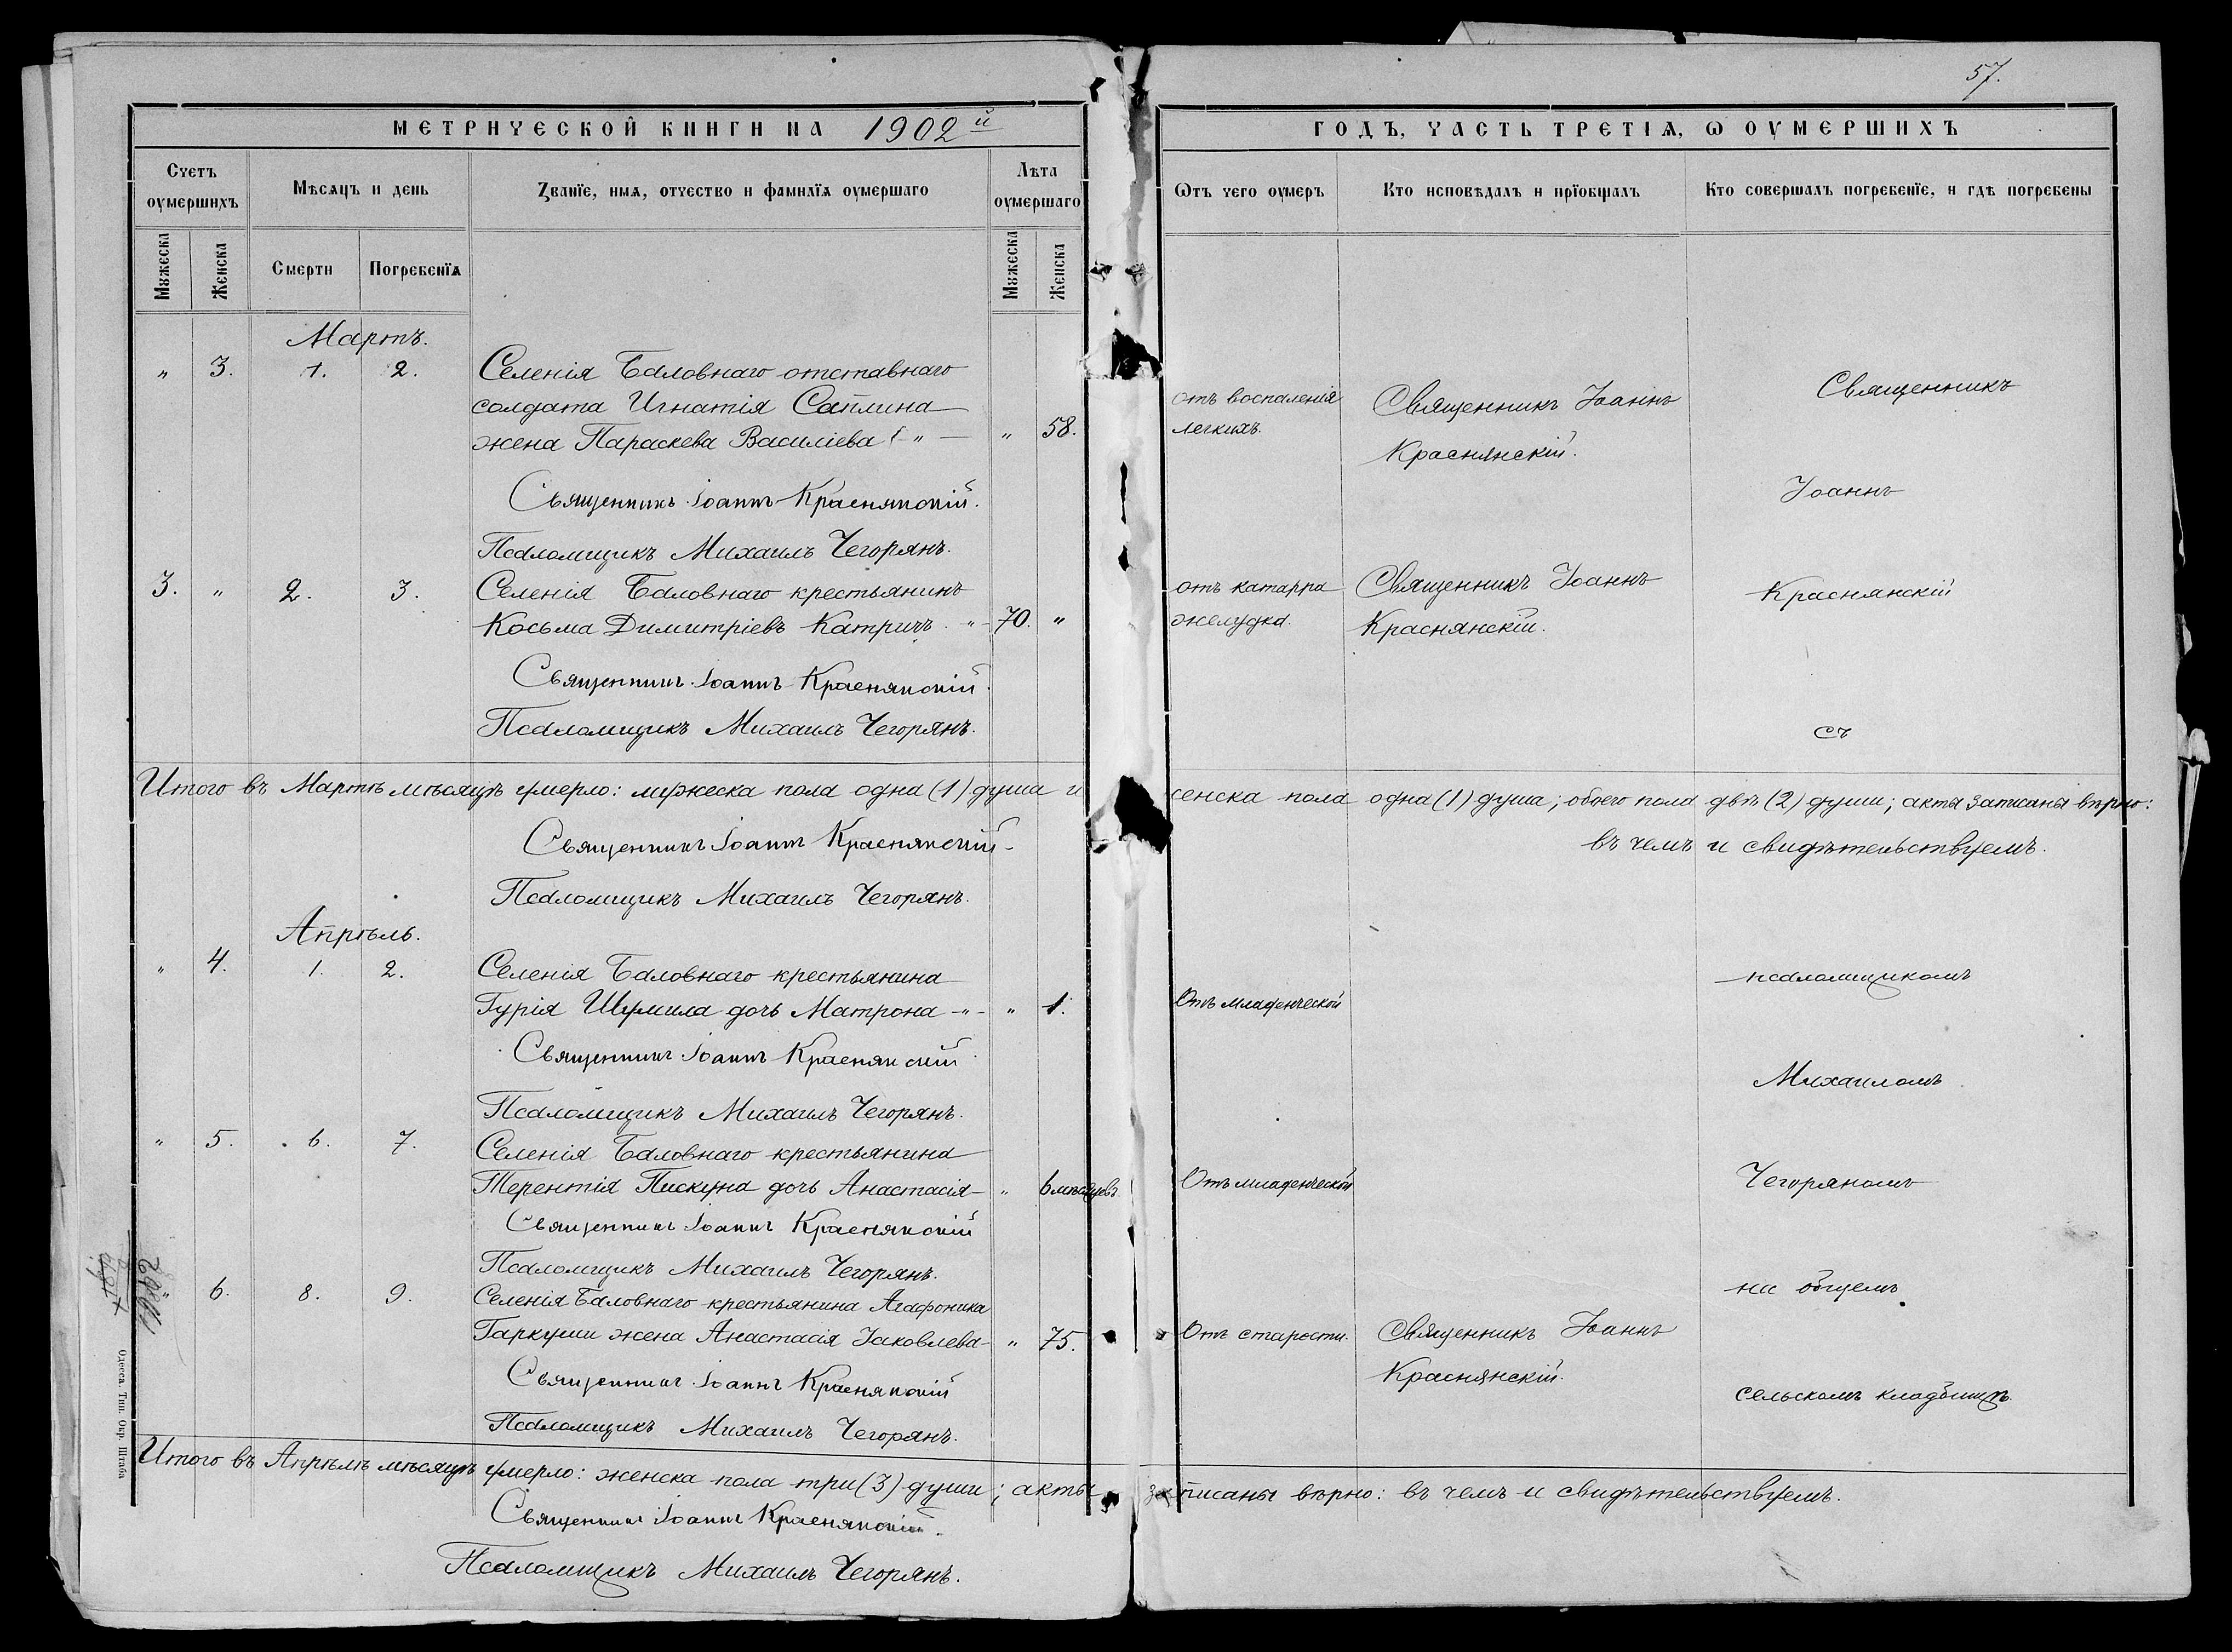 57.
МЕТРИЧЕСКОЙ КНИГИ НА 1902й
ГОДЪ, ЧАСТЬ ТРЕТІѦ, Ѡ ОУМЕРШИХЪ
Счетъ оумершихъ
Мѣсяцъ и день
Званїе, имя, отчество и фамилїя оумершаго
Лѣта оумершаго
Ѿтъ чего оумеръ
Кто исповѣдалъ и прїобщалъ
Кто совершалъ погребенїе, и гдѣ погребены
Мужеска
Женска
Смерти
Погребенїя
Мужеска
Женска
Мартъ.
" 3. 1. 2. Селенія Баловнаго отставнаго
солдата Игнатія Саплина
жена Параскева Василіева " 58.
отъ воспаленія
легкихъ.
Священникъ Іоаннъ
Краснянскій.
Священникъ
Священникъ Іоаннъ Краснянскій.
Іоаннъ
Псаломщикъ Михаилъ Чегорянъ.
3. " 2. 3. Селенія Баловнаго крестьянинъ
Косьма Димитріевъ Катричъ. 70. "
отъ катарра
желудка.
Священникъ Іоаннъ
Краснянскій.
Краснянскій
Священникъ Іоаннъ Краснянскій.
Псаломщикъ Михаилъ Чегорянъ.
съ
Итого въ Мартѣ мѣсяцѣ умерло: мужеска пола одна (1) душа и женска пола одна (1) душа; обоего пола двѣ (2) души; акты записаны вѣрно:
въ чемъ и свидѣтельствуемъ.
Священникъ Іоаннъ Краснянскій
Псаломщикъ Михаилъ Чегорянъ.
Апрѣль.
" 4. 1. 2. Селенія Баловнаго крестьянина
Гурія Шумила дочь Матрона -"- " 1.
Отъ младенческой
псаломщикомъ
Священникъ Іоаннъ Краснянскій
Михаиломъ
Псаломщикъ Михаилъ Чегорянъ.
" 5. 6. 7. Селенія Баловнаго крестьянина
Терентія Пискуна дочь Анастасія " 6 мѣсяцевъ.
Отъ младенческой
Чегоряномъ
Священникъ Іоаннъ Краснянскій
Псаломщикъ Михаилъ Чегорянъ.
на общемъ
" 6. 8. 9. Селенія Баловнаго крестьянина Агафоника
Гаркуши жена Анастасія Іаковлева " 75.
Отъ старости.
Священникъ Іоаннъ
Краснянскій.
сельскомъ кладбищѣ.
Священникъ Іоаннъ Краснянскій
Псаломщикъ Михаилъ Чегорянъ.
Итого въ Апрѣлѣ мѣсяцѣ умерло: женска пола три (3) души; акты записаны вѣрно: въ чемъ и свидѣтельствуемъ.
Священникъ Іоаннъ Краснянскій.
Псаломщикъ Михаилъ Чегорянъ.
Одесса. Тип. Окр. Штаба